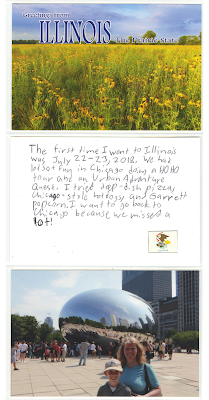 Greetings from
ILLINOIS
The Prairie State
The first time I want to Illinois
was July 22-23, 2018. We had
lots of fun in Chicago doing a HOHO
tour and an Urban Adventure
Quest. I tried deep-dish pizza,
Chicago-style hotdogs, and Garrett
popcorn. I want to go back to
Chicago because we missed a
lot!